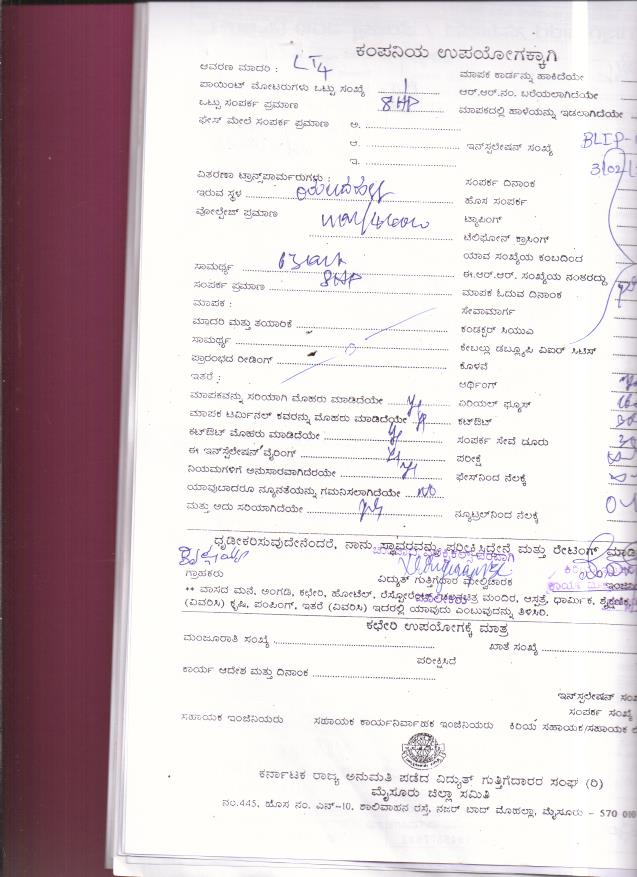 ಕಂಪನಿಯ ಉಪಯೋಗಕ್ಕಾಗಿ
ಆವರಣ ಮಾದರಿ : LT4 ಮಾಪಕ ಕಾರ್ಡನ್ನು ಹಾಕಿದೆಯೇ
ಪಾಯಿಂಟ್ ಮೋಟರುಗಳು ಒಟ್ಟು ಸಂಖ್ಯೆ 1 ಆರ್.ಆರ್.ನಂ. ಬರೆಯಲಾಗಿದೆಯೇ
ಒಟ್ಟು ಸಂಪರ್ಕ ಪ್ರಮಾಣ 8HP ಮಾಪಕದಲ್ಲಿ ಹಾಳೆಯನ್ನು ಇಡಲಾಗಿದೆಯೇ
ಫೇಸ್ ಮೇಲೆ ಸಂಪರ್ಕ ಪ್ರಮಾಣ ಅ.
ಆ. ಇನ್‌ಸ್ಟಲೇಷನ್ ಸಂಖ್ಯೆ BLIP-
ಇ. 3/02/
ವಿತರಣಾ ಟ್ರಾನ್ಸ್‌ಫಾರ್ಮರುಗಳು : ಸಂಪರ್ಕ ದಿನಾಂಕ
ಇರುವ ಸ್ಥಳ ಹೊಸ ಸಂಪರ್ಕ
ವೋಲ್ಟೇಜ್ ಪ್ರಮಾಣ ಟ್ಯಾಪಿಂಗ್
ಟೆಲಿಫೋನ್ ಕ್ರಾಸಿಂಗ್
ಯಾವ ಸಂಖ್ಯೆಯ ಕಂಬದಿಂದ
ಸಾಮರ್ಥ್ಯ 63KVA ಈ.ಆರ್.ಆರ್. ಸಂಖ್ಯೆಯ ನಂತರದ್ದು
ಸಂಪರ್ಕ ಪ್ರಮಾಣ 8HP ಮಾಪಕ ಓದುವ ದಿನಾಂಕ
ಮಾಪಕ : ಸೇವಾಮಾರ್ಗ
ಮಾದರಿ ಮತ್ತು ತಯಾರಿಕೆ ಕಂಡಕ್ಟರ್ ಸಿಯುಎ
ಸಾಮರ್ಥ್ಯ ಕೇಬಲ್ಲು ಡಬ್ಲ್ಯೂಪಿ ವಿಐಆರ್ ಸಿಟಿಸ್
ಪ್ರಾರಂಭದ ರೀಡಿಂಗ್ ಕೊಳವೆ
ಇತರೆ : ಆರ್ಥಿಂಗ್
ಮಾಪಕವನ್ನು ಸರಿಯಾಗಿ ಮೊಹರು ಮಾಡಿದೆಯೇ ಏರಿಯಲ್ ಫ್ಯೂಸ್
ಮಾಪಕ ಟರ್ಮಿನಲ್ ಕವರನ್ನು ಮೊಹರು ಮಾಡಿದೆಯೇ ಕಟ್‌ಔಟ್
ಕಟ್‌ಔಟ್ ಮೊಹರು ಮಾಡಿದೆಯೇ ಸಂಪರ್ಕ ಸೇವೆ ದೂರು
ಈ ಇನ್‌ಸ್ಟೆಲೇಷನ್ ವೈರಿಂಗ್ ಪರೀಕ್ಷೆ
ನಿಯಮಗಳಿಗೆ ಅನುಸಾರವಾಗಿದೆಯೇ ಫೇಸ್‌ನಿಂದ ನೆಲಕ್ಕೆ
ಯಾವುಬಾದರೂ ನ್ಯೂನತೆಯನ್ನು ಗಮನಿಸಲಾಗಿದೆಯೇ NO
ಮತ್ತು ಅದು ಸರಿಯಾಗಿದೆಯೇ ನ್ಯೂಟ್ರಲ್‌ನಿಂದ ನೆಲಕ್ಕೆ
ಧೃಡೀಕರಿಸುವುದೇನೆಂದರೆ, ನಾನು ಸ್ಥಾವರವನ್ನು ಪರೀಕ್ಷಿಸಿದ್ದೇನೆ ಮತ್ತು ರೇಟಿಂಗ್ ಮಾಡಿ
ಗ್ರಾಹಕರು ವಿದ್ಯುತ್ ಗುತ್ತಿಗೆದಾರ ಮೇಲ್ವಿಚಾರಕ
** ವಾಸದ ಮನೆ, ಅಂಗಡಿ, ಕಛೇರಿ, ಹೋಟೆಲ್, ಮಂದಿರ, ಆಸ್ಪತ್ರೆ, ಧಾರ್ಮಿಕ, ಶೈಕ್ಷಣಿಕ
(ವಿವರಿಸಿ) ಕೃಷಿ, ಪಂಪಿಂಗ್, ಇತರೆ (ವಿವರಿಸಿ) ಇದರಲ್ಲಿ ಯಾವುದು ಎಂಬುವುದನ್ನು ತಿಳಿಸಿರಿ.
ಕಛೇರಿ ಉಪಯೋಗಕ್ಕೆ ಮಾತ್ರ
ಮಂಜೂರಾತಿ ಸಂಖ್ಯೆ ಖಾತೆ ಸಂಖ್ಯೆ
ಪರೀಕ್ಷಿಸಿದೆ
ಕಾರ್ಯ ಆದೇಶ ಮತ್ತು ದಿನಾಂಕ
ಇನ್‌ಸ್ಟಲೇಷನ್ ಸಂಖ
ಸಂಪರ್ಕ ಸಂಖ್ಯೆ
ಸಹಾಯಕ ಇಂಜಿನಿಯರು ಸಹಾಯಕ ಕಾರ್ಯನಿರ್ವಾಹಕ ಇಂಜಿನಿಯರು ಕಿರಿಯ ಸಹಾಯಕ/ಸಹಾಯಕ
ಕರ್ನಾಟಕ ರಾಜ್ಯ ಅನುಮತಿ ಪಡೆದ ವಿದ್ಯುತ್ ಗುತ್ತಿಗೆದಾರರ ಸಂಘ (ರಿ)
ಮೈಸೂರು ಜಿಲ್ಲಾ ಸಮಿತಿ
ನಂ.445, ಹೊಸ ನಂ. ಎನ್-10, ಶಾಲಿವಾಹನ ರಸ್ತೆ, ನಜರ್ ಬಾದ್ ಮೊಹಲ್ಲಾ, ಮೈಸೂರು - 570 010